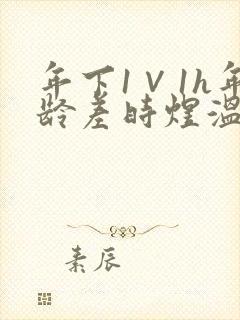 年下1V1h年
龄差时煌温
素辰